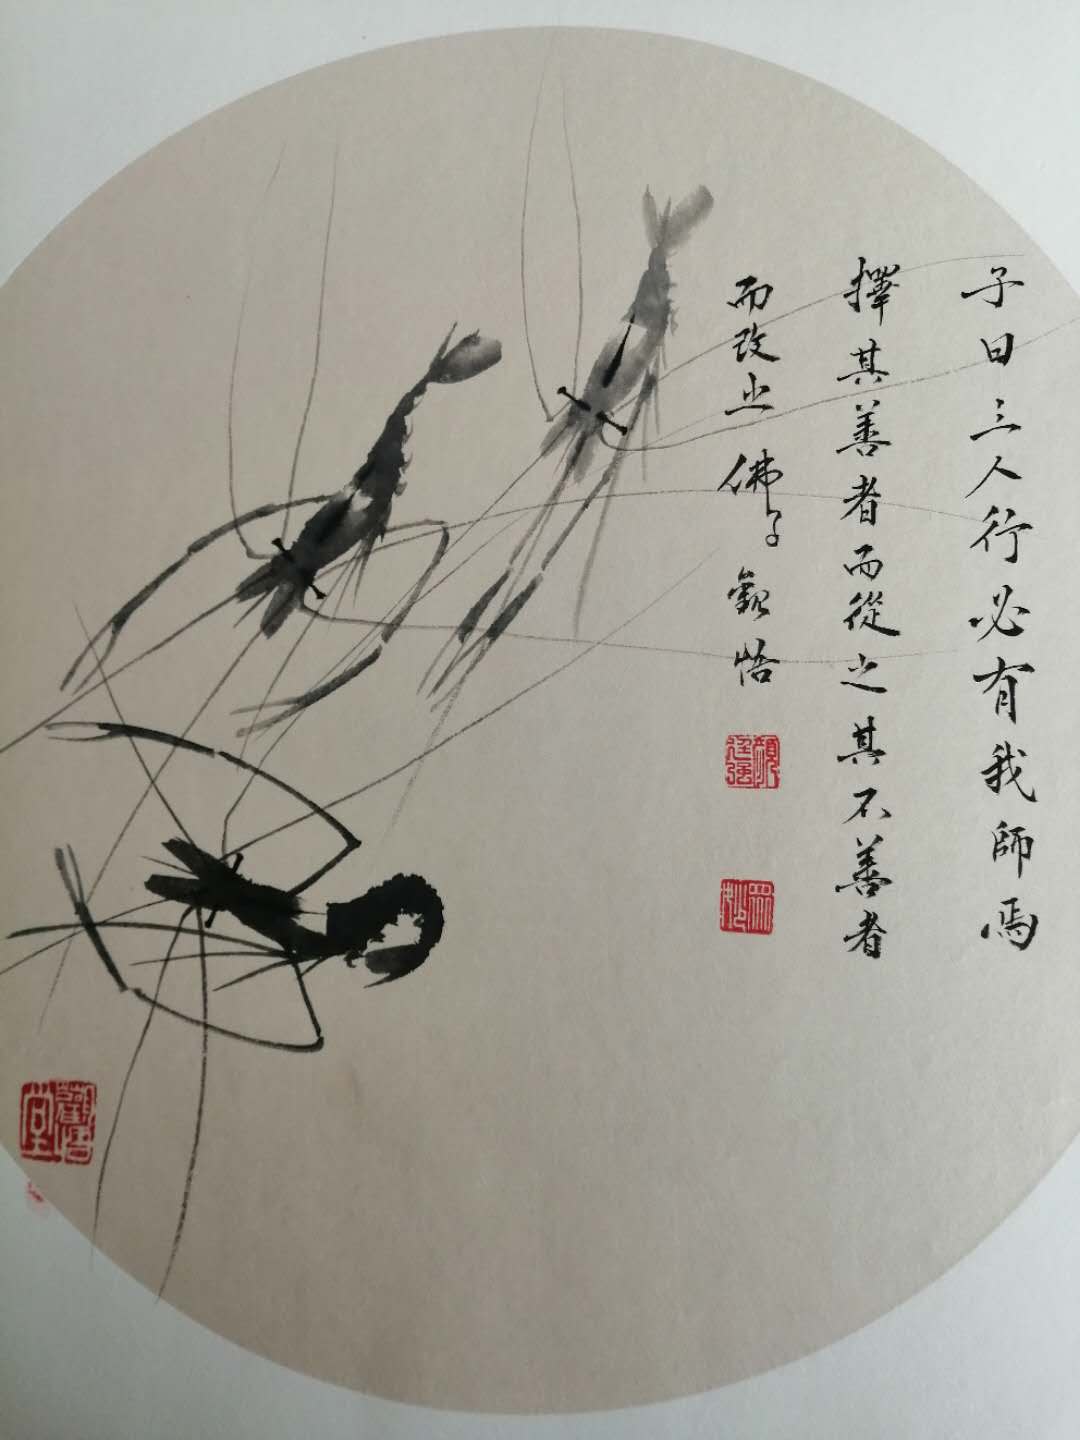 子曰三人行必有我師焉
擇其善者而從之其不善者
而改之 佛子 觀悟
觀悟堂